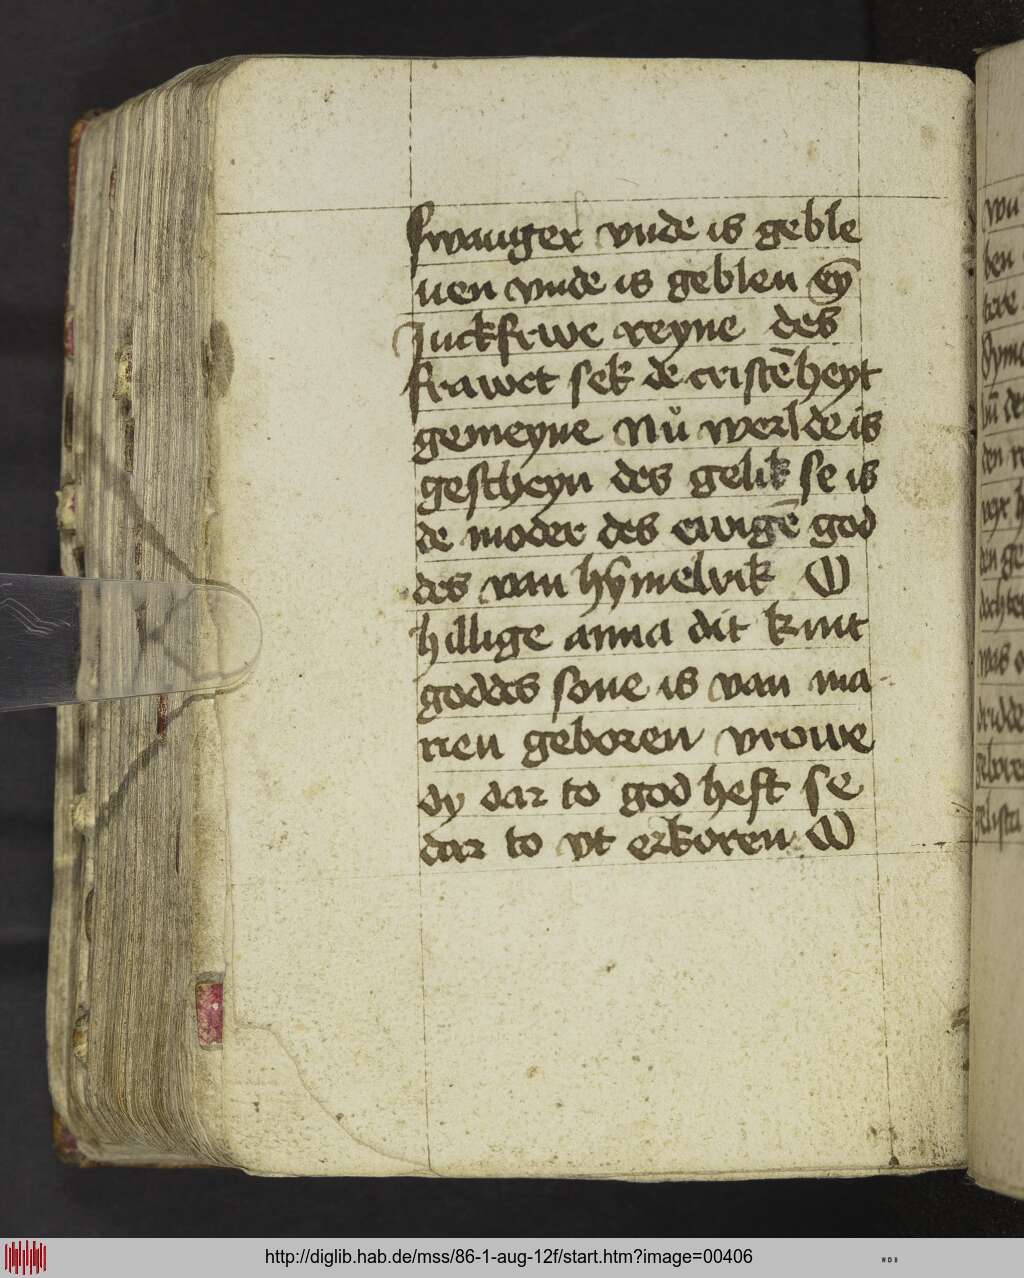 swanger vnde is geble
uen vnde is gebleu eȳ
Juckfrwe reyne des
frawet sek de cristēheyt
gemeyne Nů werlde is
gescheyn des gelik se is
de moder des ewigē god
des van hӯmelrik O
hillige anna dit kint
goddes sone is van ma
rien geboren vrowe
dy dar to god heft se
dar to vt erkoren O
http://diglib.hab.de/mss/86-1-aug-12f/start.htm?image=00406